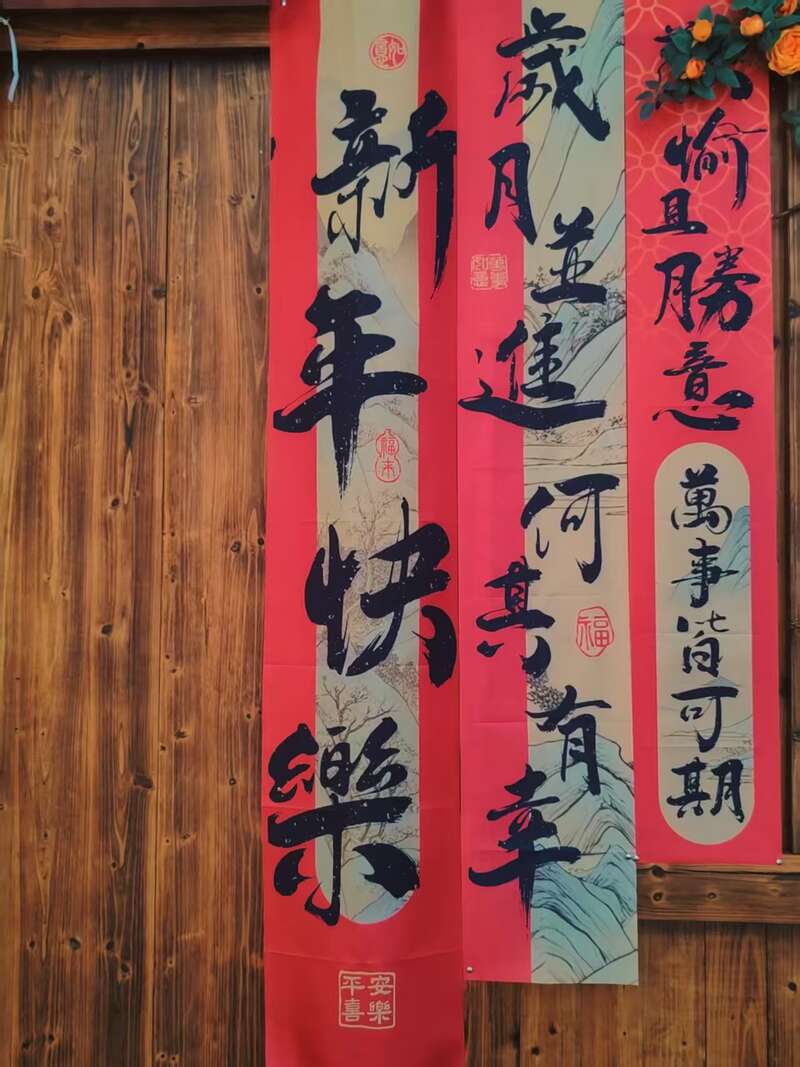 愉且勝意
萬事皆可期
歲月並進何其有幸
萬事如意
福
新年快樂
福来
平安
喜樂